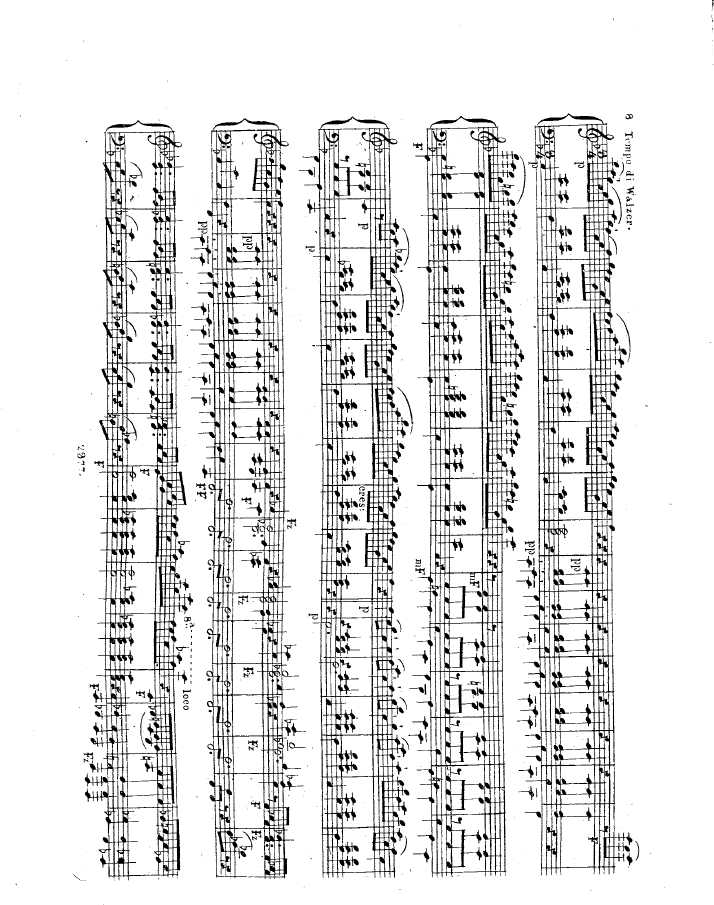 8 Tempo di Walzer.
p
p
pp
pp
p
F
mF
mF
p
p
cres:
p
p
pp
pp
F
FF
Fz
Fz
Fz
Fz
F
Fz
F
F
8va
loco
F
F
Fz
2877.